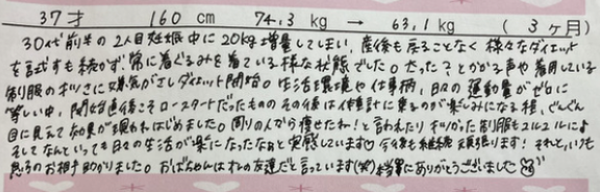 37才 160cm 74.3kg → 63.1kg (3ヶ月)
30代前半の2人目妊娠中に20kg増量してしまい、産後も戻ることなく様々なダイエット
を試すも続かず、常に着ぐるみを着ている様な状態でした。太った?とかかる声や着用している
制服のキツさに嫌気がさしダイエット開始。生活環境や仕事柄、日々の運動量がゼロに
等しい中、開始直後こそロースタートだったもののその後は体重計に乗るのが楽しみになる程、どんどん
目に見えて効果が現われはじめました。周りの人から痩せたね!と言われたりキツかった制服もユルユルによ
そしてなんといっても日々の生活が楽になったなぁと実感しています♡今後も継続頑張ります!それと、いつも
怒るのお相手助かりました。おばちゃんはオレの友達だと言っています(笑)本当にありがとうございました